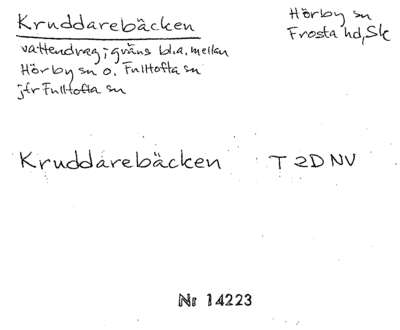 Kruddarebäcken
Hörby sn
Frosta hd, Sk
vattendrag; gräns bl.a. mellan
Hörby sn o. Fulltofta sn
jfr Fulltofta sn
Kruddarebäcken T 2D NV
Nr 14223